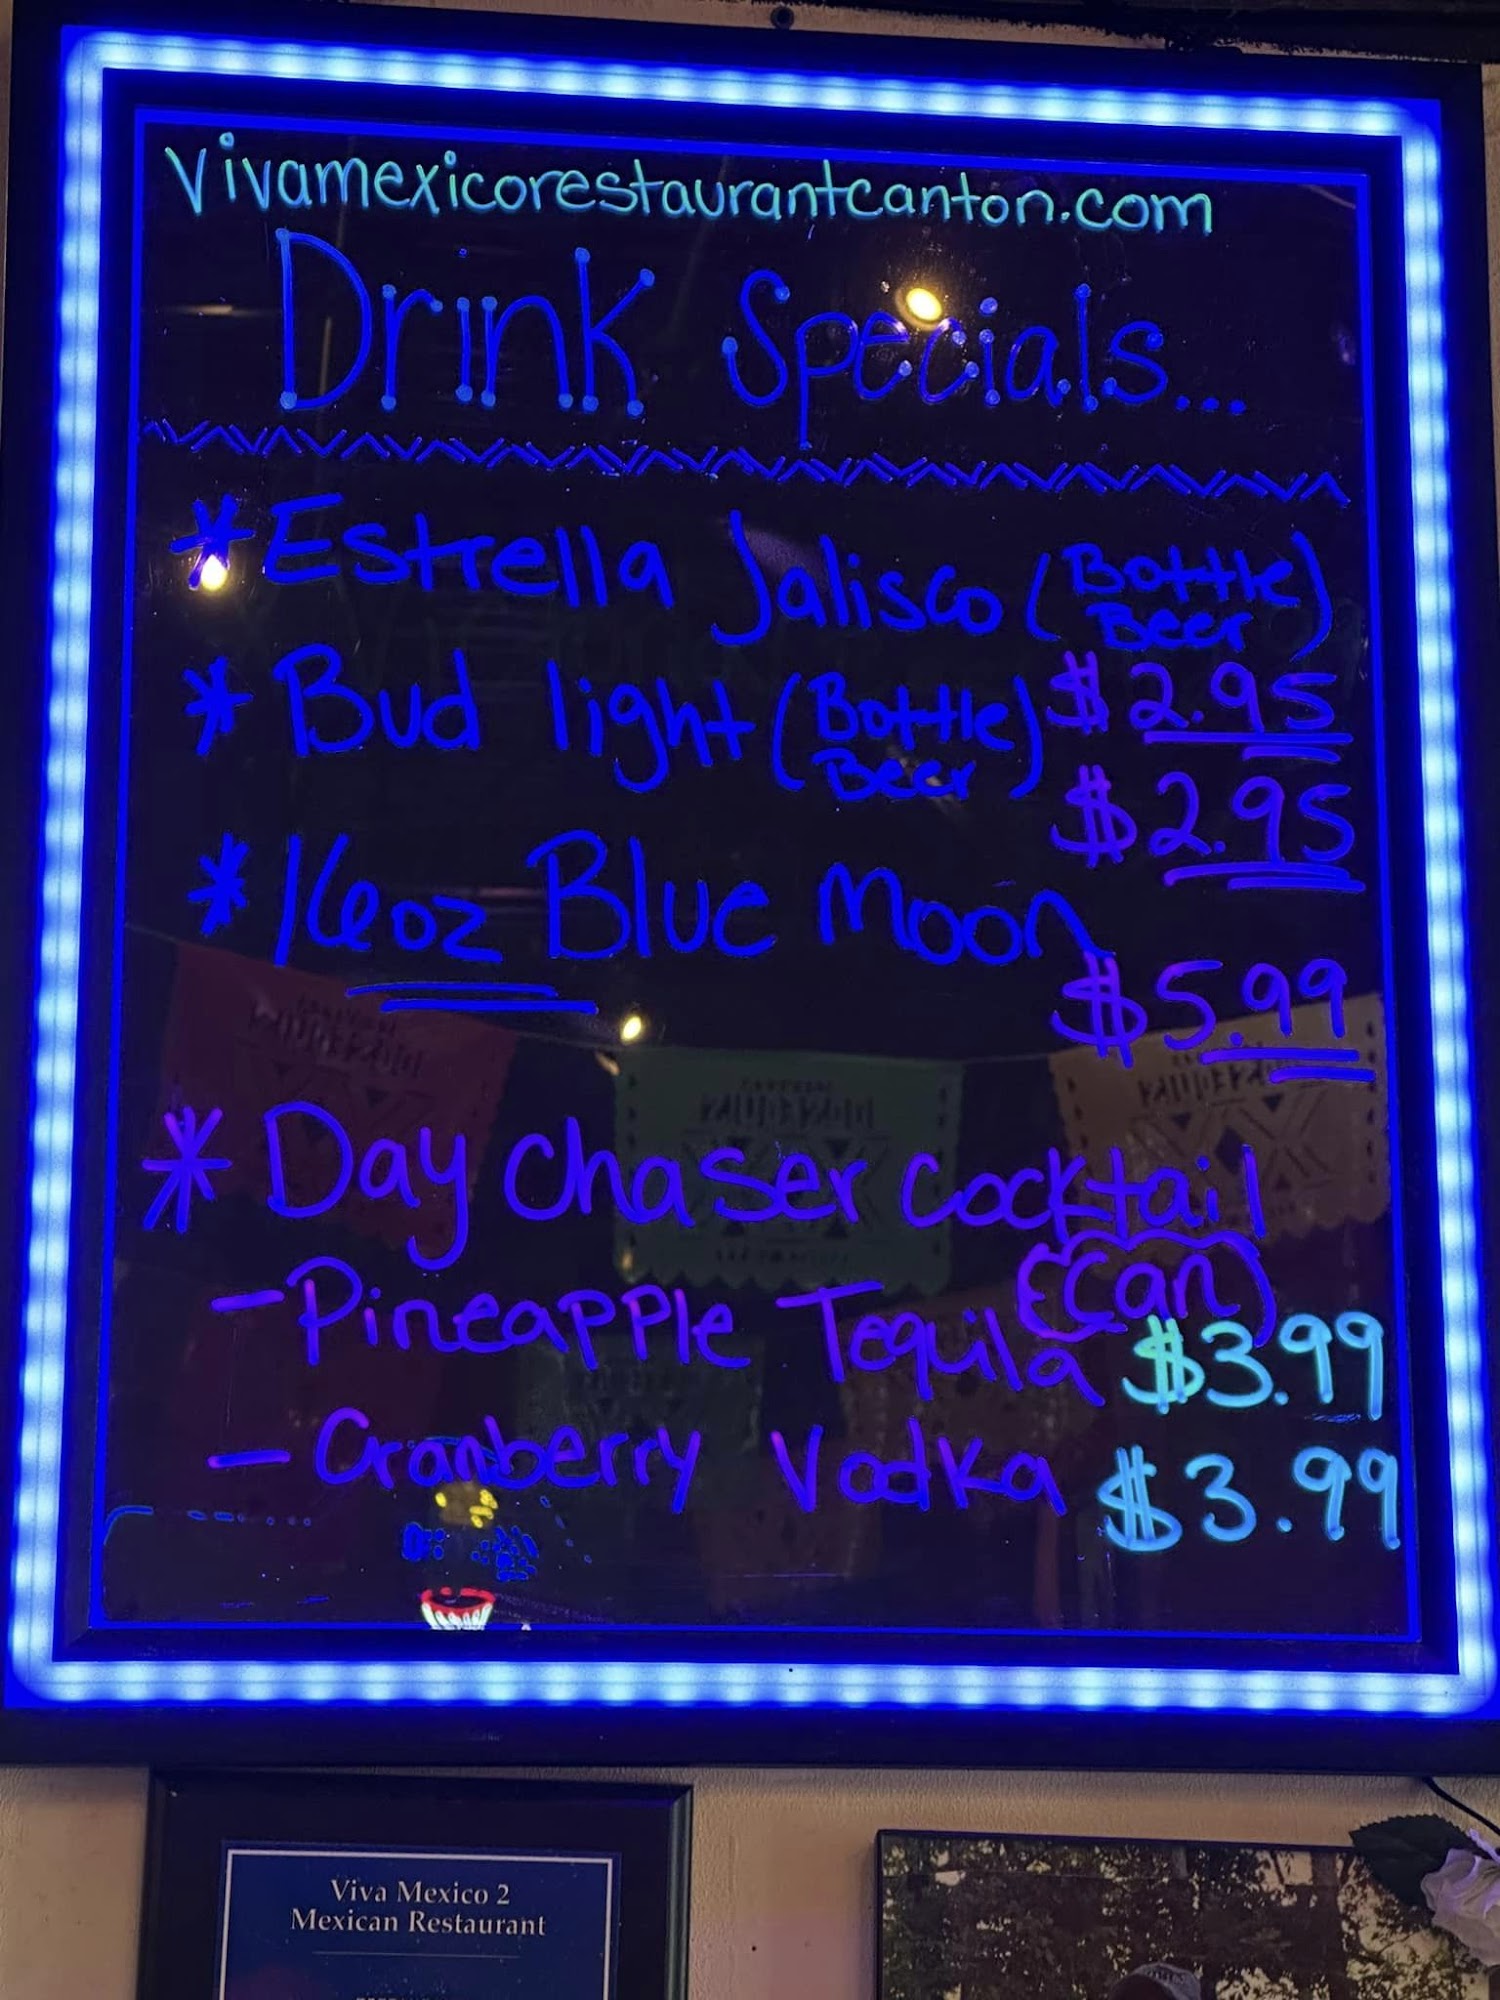 Vivamexicorestaurantcanton.com
Drink Specials...
*Estrella Jalisco (Bottle Beer)
$2.95
* Bud light (Bottle Beer)
$2.95
* 16oz Blue Moon
$5.99
* Day Chaser Cocktail
(Can)
- Pineapple Tequila $3.99
- Cranberry Vodka $3.99
Viva Mexico 2
Mexican Restaurant